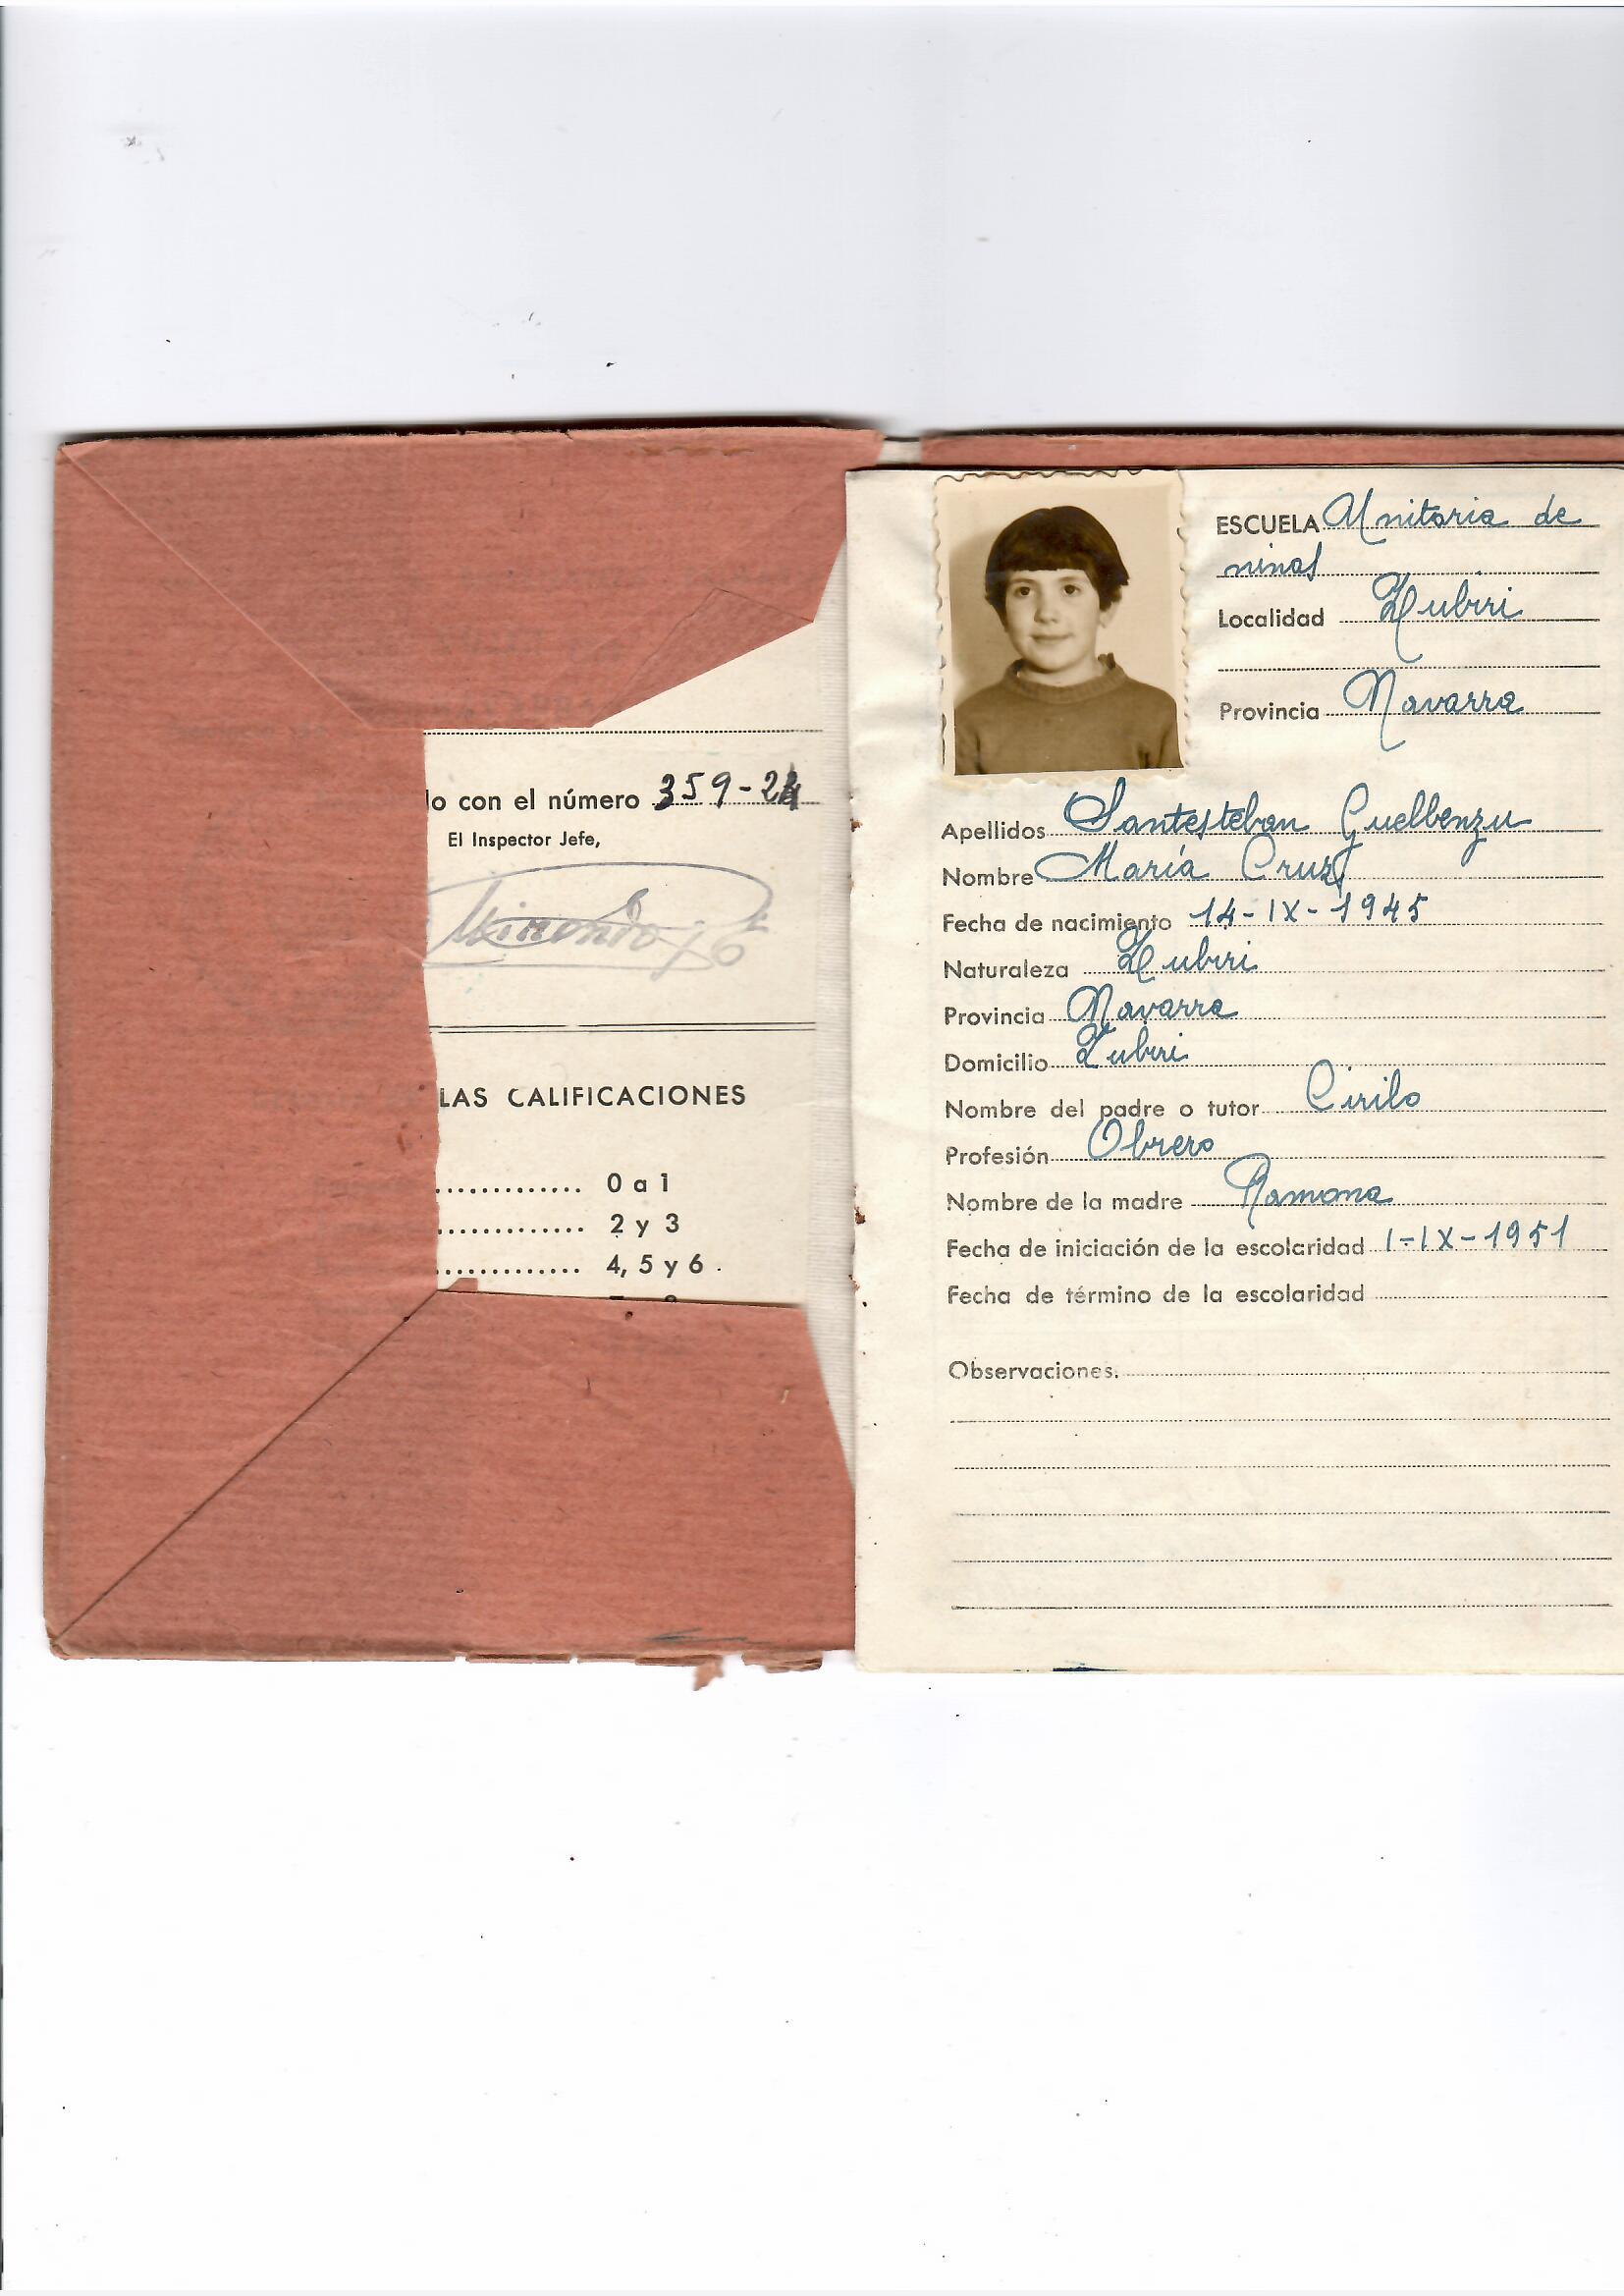 lo con el número 359-24
El Inspector Jefe,
LAS CALIFICACIONES
0 a 1
2 y 3
4, 5 y 6
ESCUELA Unitaria de
niñas
Localidad Zubiri
Provincia Navarra
Apellidos Santesteban Guelbenzu
Nombre María Cruz
Fecha de nacimiento 14-IX-1945
Naturaleza Zubiri
Provincia Navarra
Domicilio Zubiri
Nombre del padre o tutor Cirilo
Profesión Obrero
Nombre de la madre Ramona
Fecha de iniciación de la escolaridad 1-IX-1951
Fecha de término de la escolaridad
Observaciones.